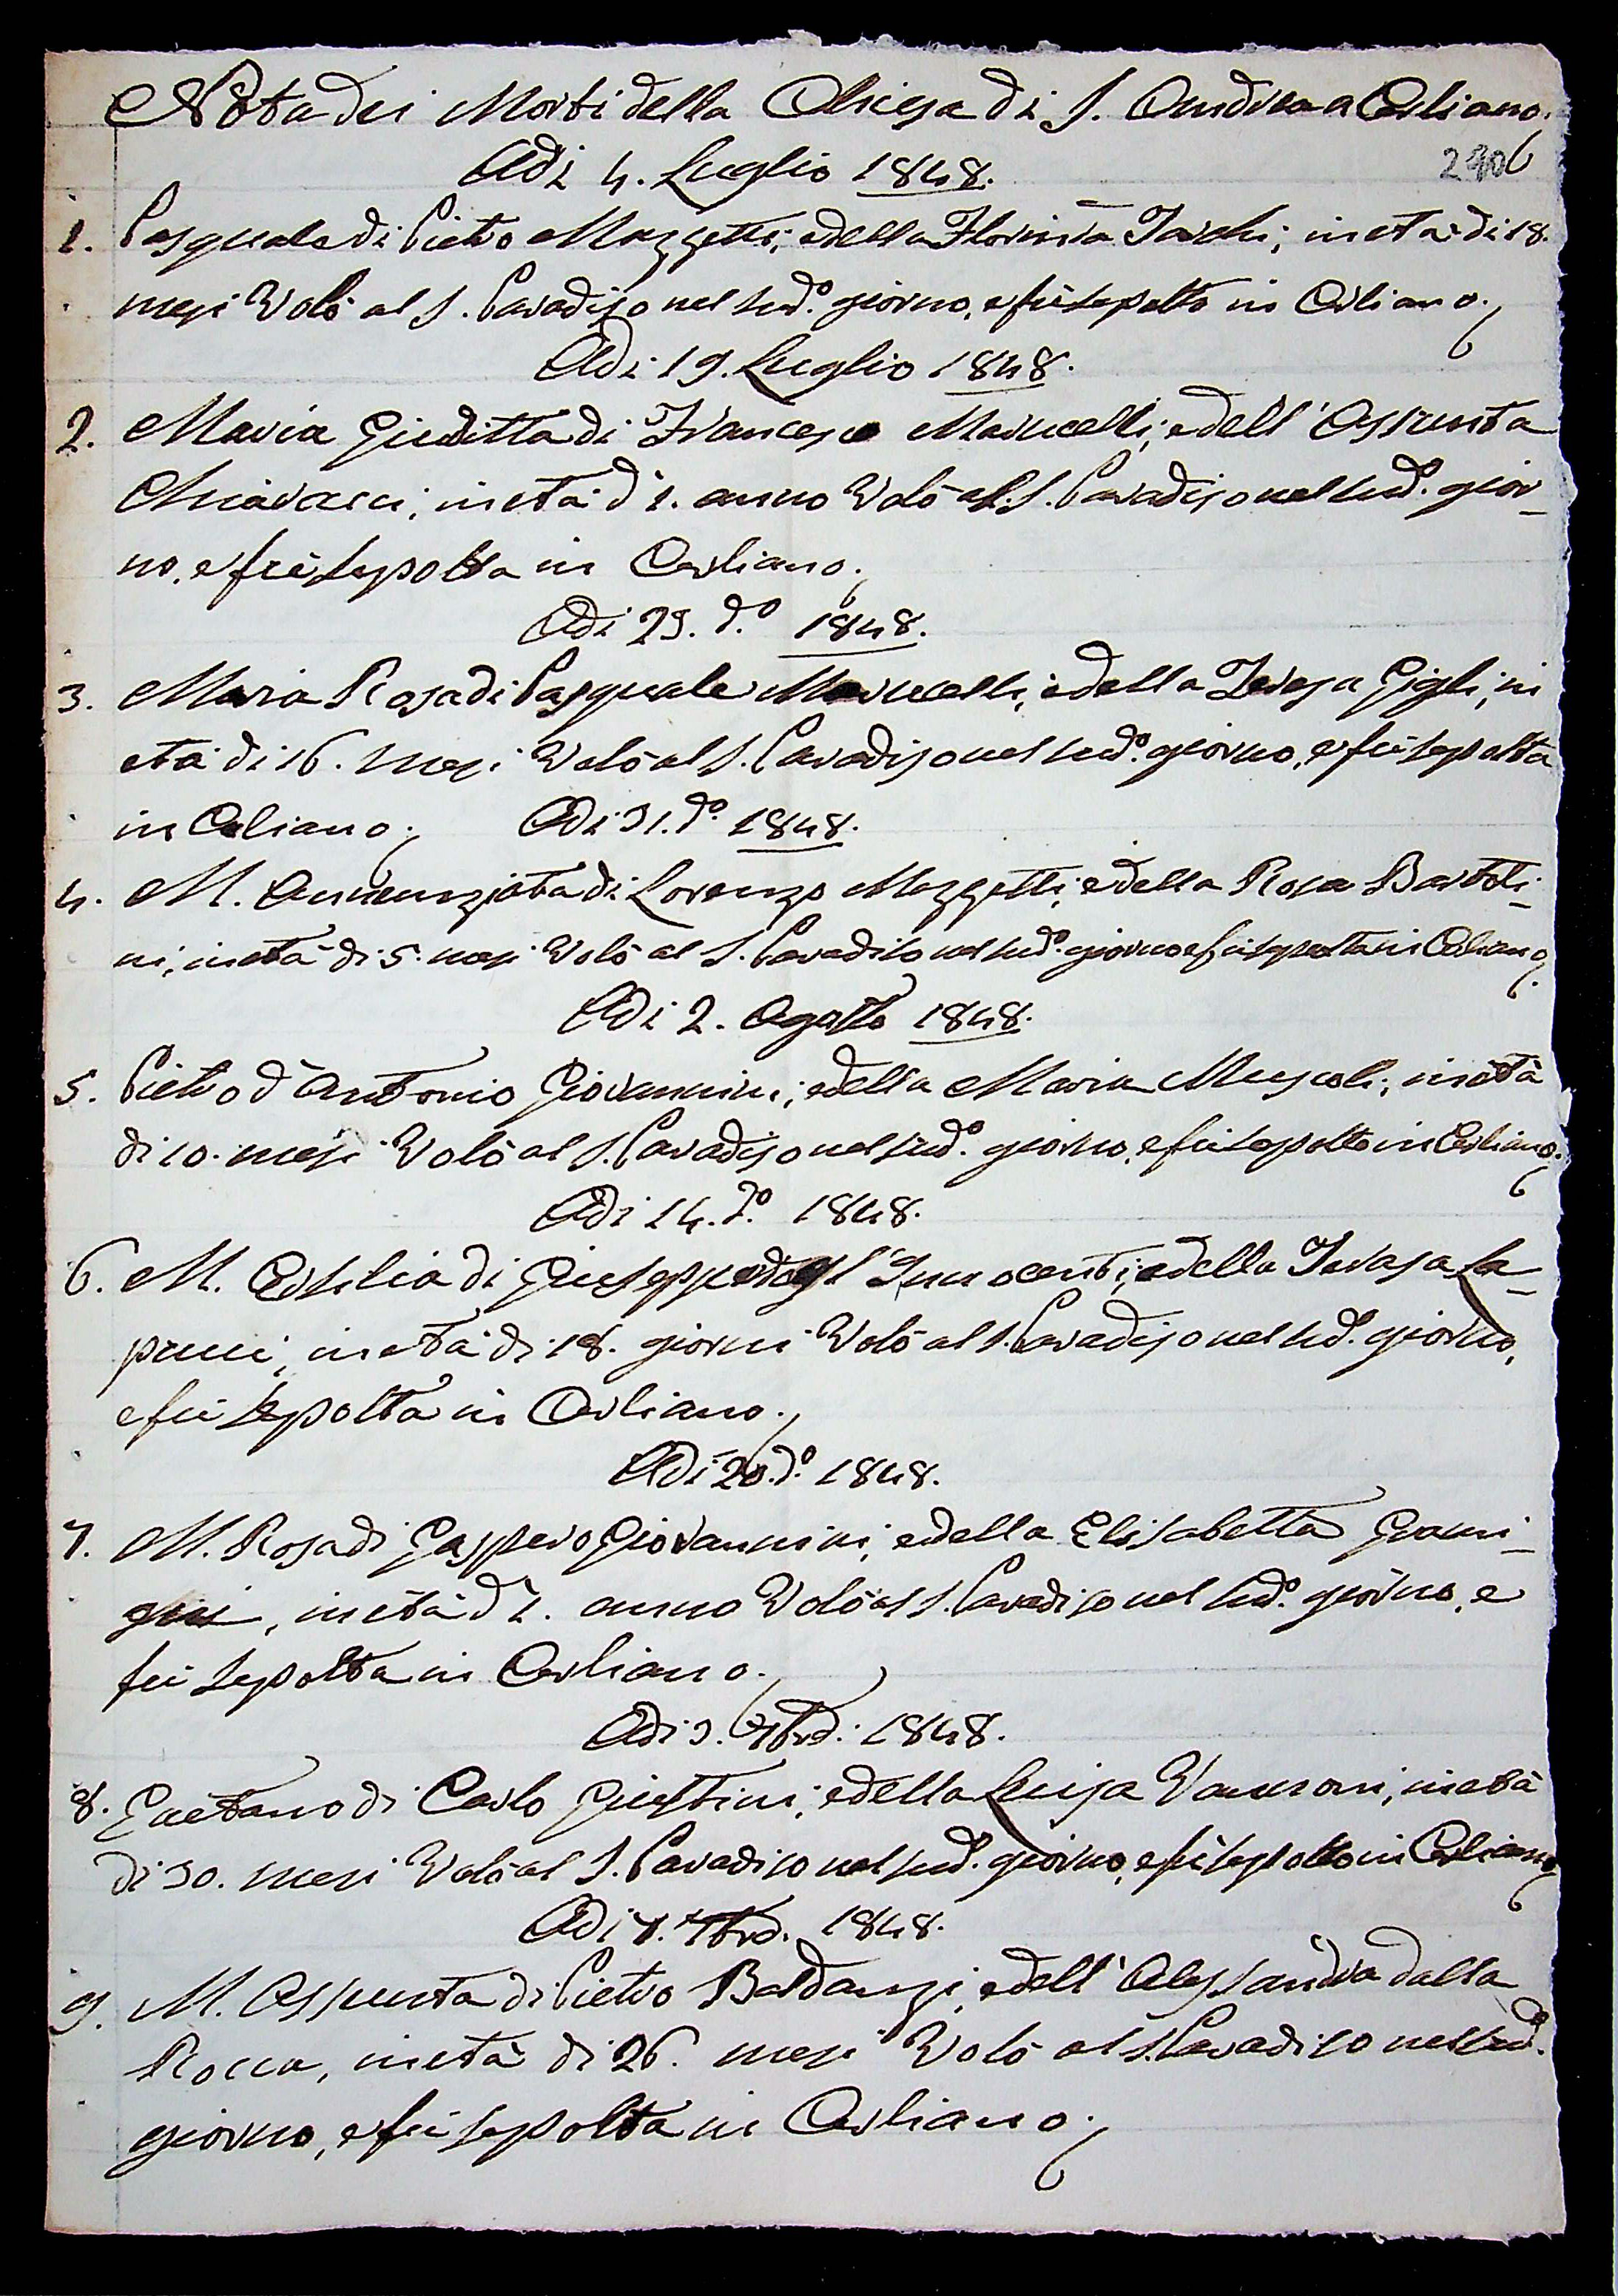 Nota dei Morti della Chiesa di S. Andrea a Cerliano.
Adì 4. Luglio 1848.
1. Pasquale di Pietro Mazzetti, e della Florinda Tarchi, in età di 18.
mesi Volò al S. Paradiso nel sud.º giorno, e fù sepolto in Cerliano.
Adì 19. Luglio 1848.
2. Maria Giuditta di Francesco Marucelli, e dell' Assunta
Chiavacci, in età d' 1. anno Volò al S. Paradiso nel sud.º gior-
no, e fù sepolta in Cerliano.
Adì 29. d.º 1848.
3. Maria Rosa di Pasquale Marucelli, e della Teresa Gigli, in
età di 16. mesi Volò al S. Paradiso nel sud.º giorno, e fù sepolta
in Cerliano. Adì 31. d.º 1848.
4. M. Annunziata di Lorenzo Mazzetti, e della Rosa Bartoli-
ni, in età di 5. mesi Volò al S. Paradiso nel sud.º giorno e fù sepolta in Cerliano.
Adì 2. Agosto 1848.
5. Pietro d' Antonio Giovannini, e della Maria Muscoli, in età
di 10. mesi Volò al S. Paradiso nel sud.º giorno, e fù sepolto in Cerliano.
Adì 14. d.º 1848.
6. M. Ersilia di Giuseppe degl' Innocenti, e della Teresa La-
pucci, in età di 18. giorni Volò al S. Paradiso nel sud.º giorno,
e fù sepolta in Cerliano.
Adì 20. d.º 1848.
7. M. Rosa di Gaspero Giovannini, e della Elisabetta Grami-
gni, in età d' 1. anno Volò al S. Paradiso nel sud.º giorno, e
fù sepolta in Cerliano.
Adì 3. 7bre. 1848.
8. Gaetano di Carlo Giustini, e della Luisa Vannoni, in età
di 30. mesi Volò al S. Paradiso nel sud.º giorno, e fù sepolto in Cerliano.
Adì 7. 7bre. 1848.
9. M. Assunta di Pietro Baldanzi, e dell' Alessandra dalla
Rocca, in età di 26. mesi Volò al S. Paradiso nel sud.º
giorno, e fù sepolta in Cerliano.